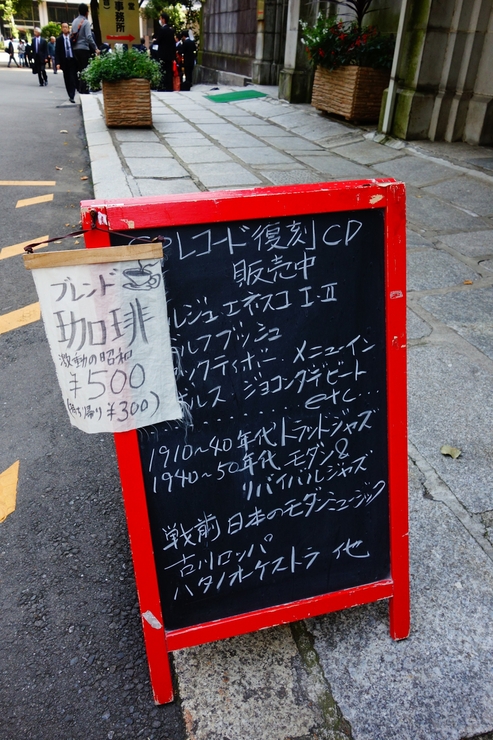 事務所
ブレンド
珈琲
激動の昭和
¥500
(持ち帰り ¥300)
Pレコード復刻CD
販売中
ルジュ・エネスコ I・II
ルフブッシュ
ックティボー . メニューイン
ルス ジョコンダデビート
etc...
1910〜40年代トラッドジャズ
1940〜50年代 モダン&
リバイバルジャズ
戦前 日本のモダンミュージック
古川ロッパ
ハタノオーケストラ 他